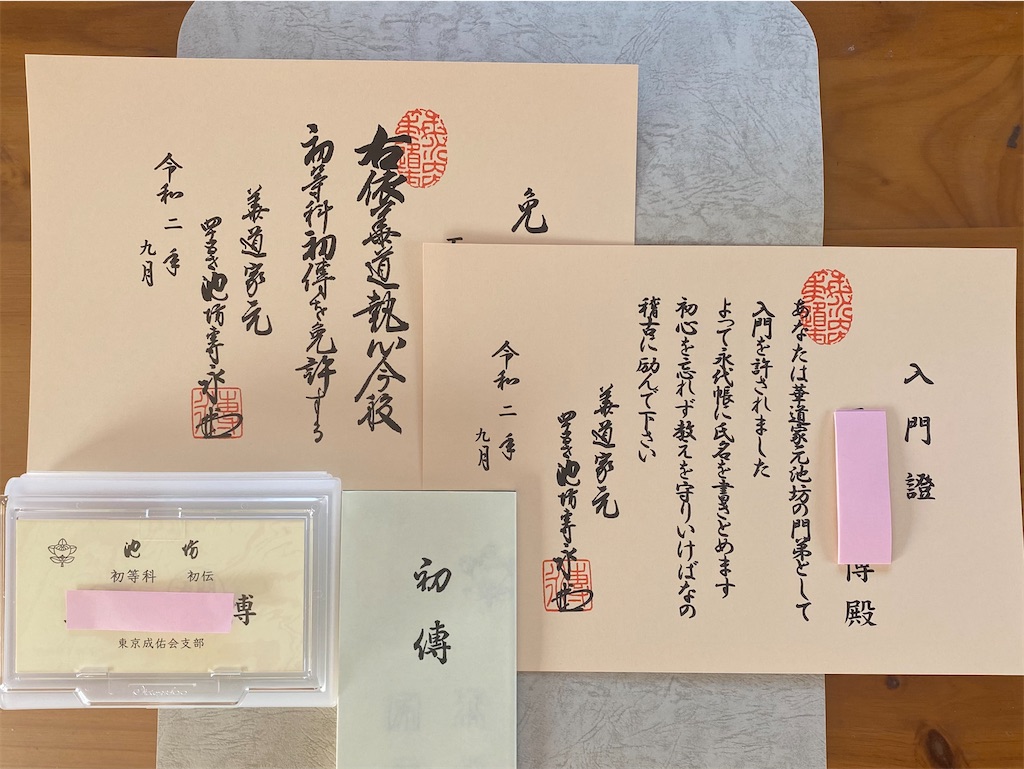 免
右依華道執心今般
初等科初傳を免許する
華道家元
四十五世 池坊専永
令和二年
九月
入門證
博殿
あなたは華道家元池坊の門弟として
入門を許されました
よって永代帳に氏名を書きとめます
初心を忘れず教えを守りいけばなの
稽古に励んで下さい
華道家元
四十五世 池坊専永
令和二年
九月
池坊
初等科 初伝
博
東京成佑会支部
初傳